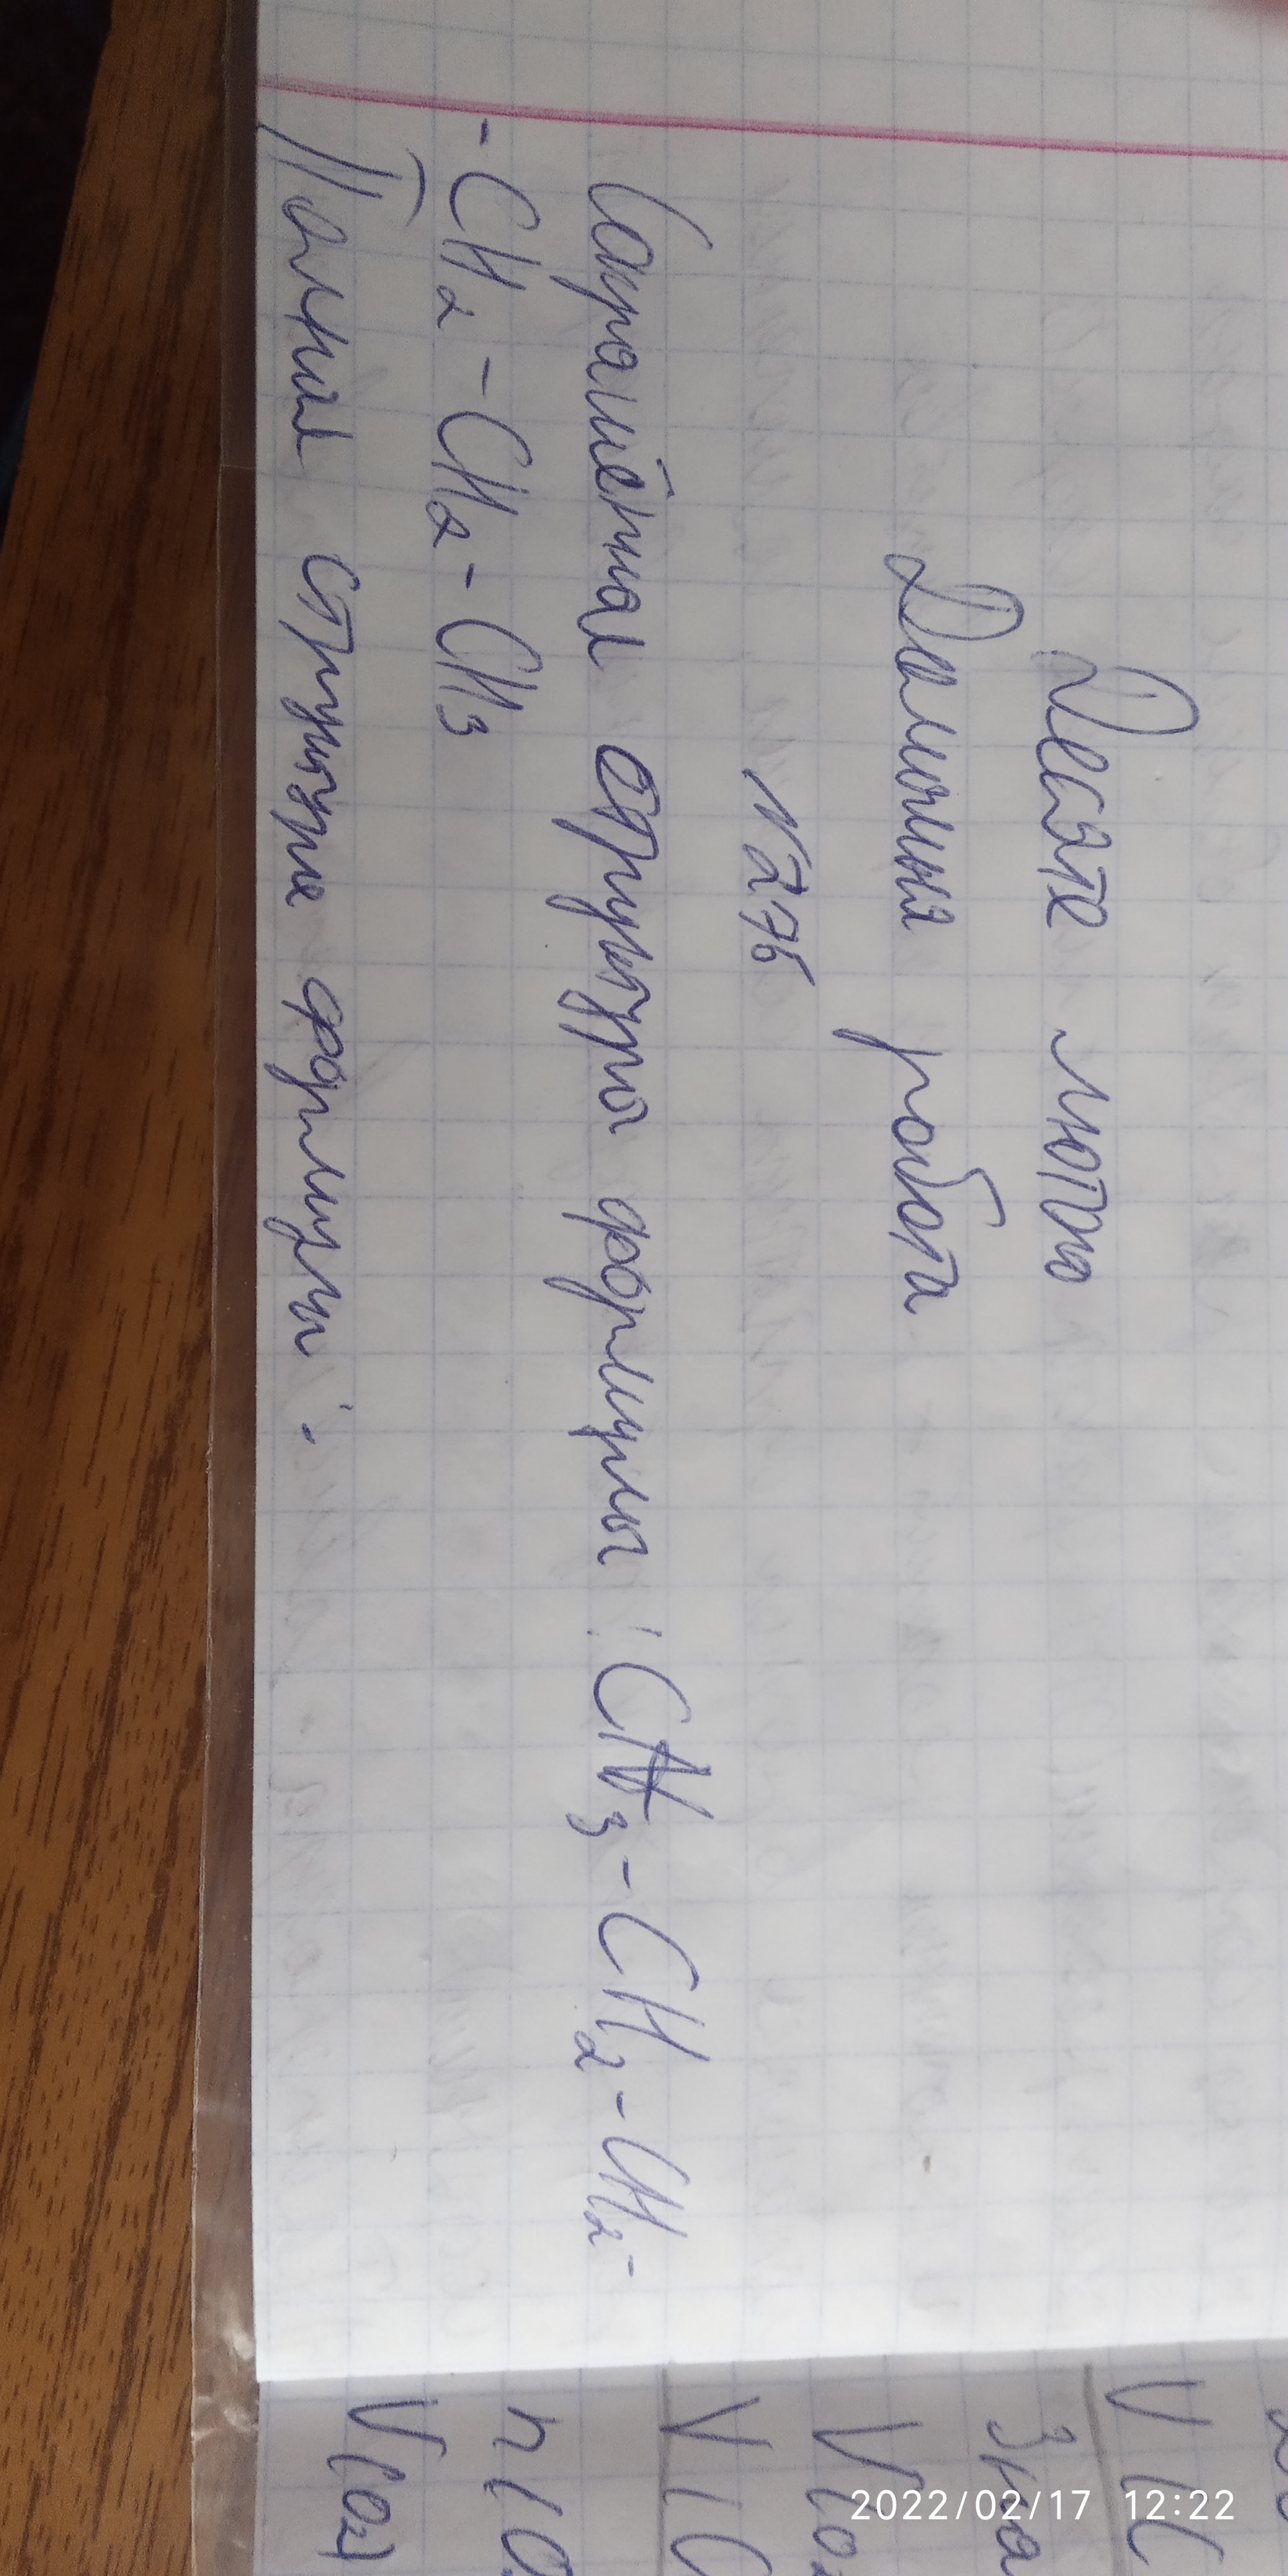 Десяте лютого
Домашня робота
№276
Скорочённая структура формулы: CH3-CH2-CH2-
-CH2-CH2-CH3
Полная структура формулы:
V(O2)
n(O
V(C
V(O2
Зна
V(C
2022/02/17 12:22